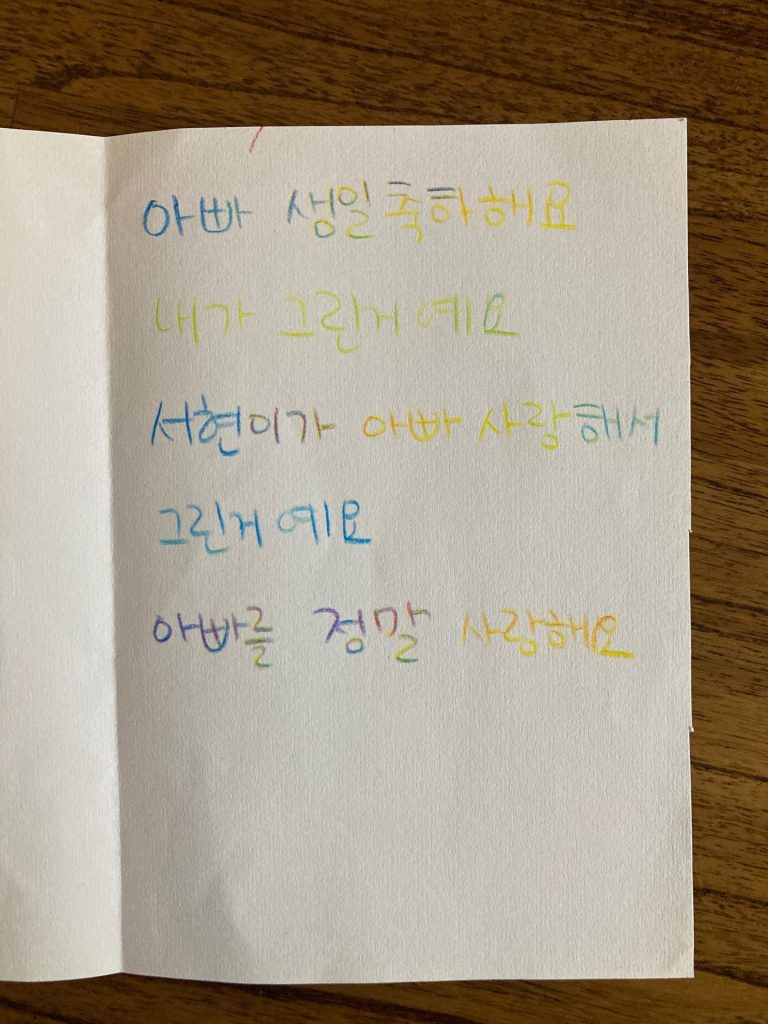 아빠 생일축하해요
내가 그린거예요
서현이가 아빠 사랑해서
그린거예요
아빠를 정말 사랑해요